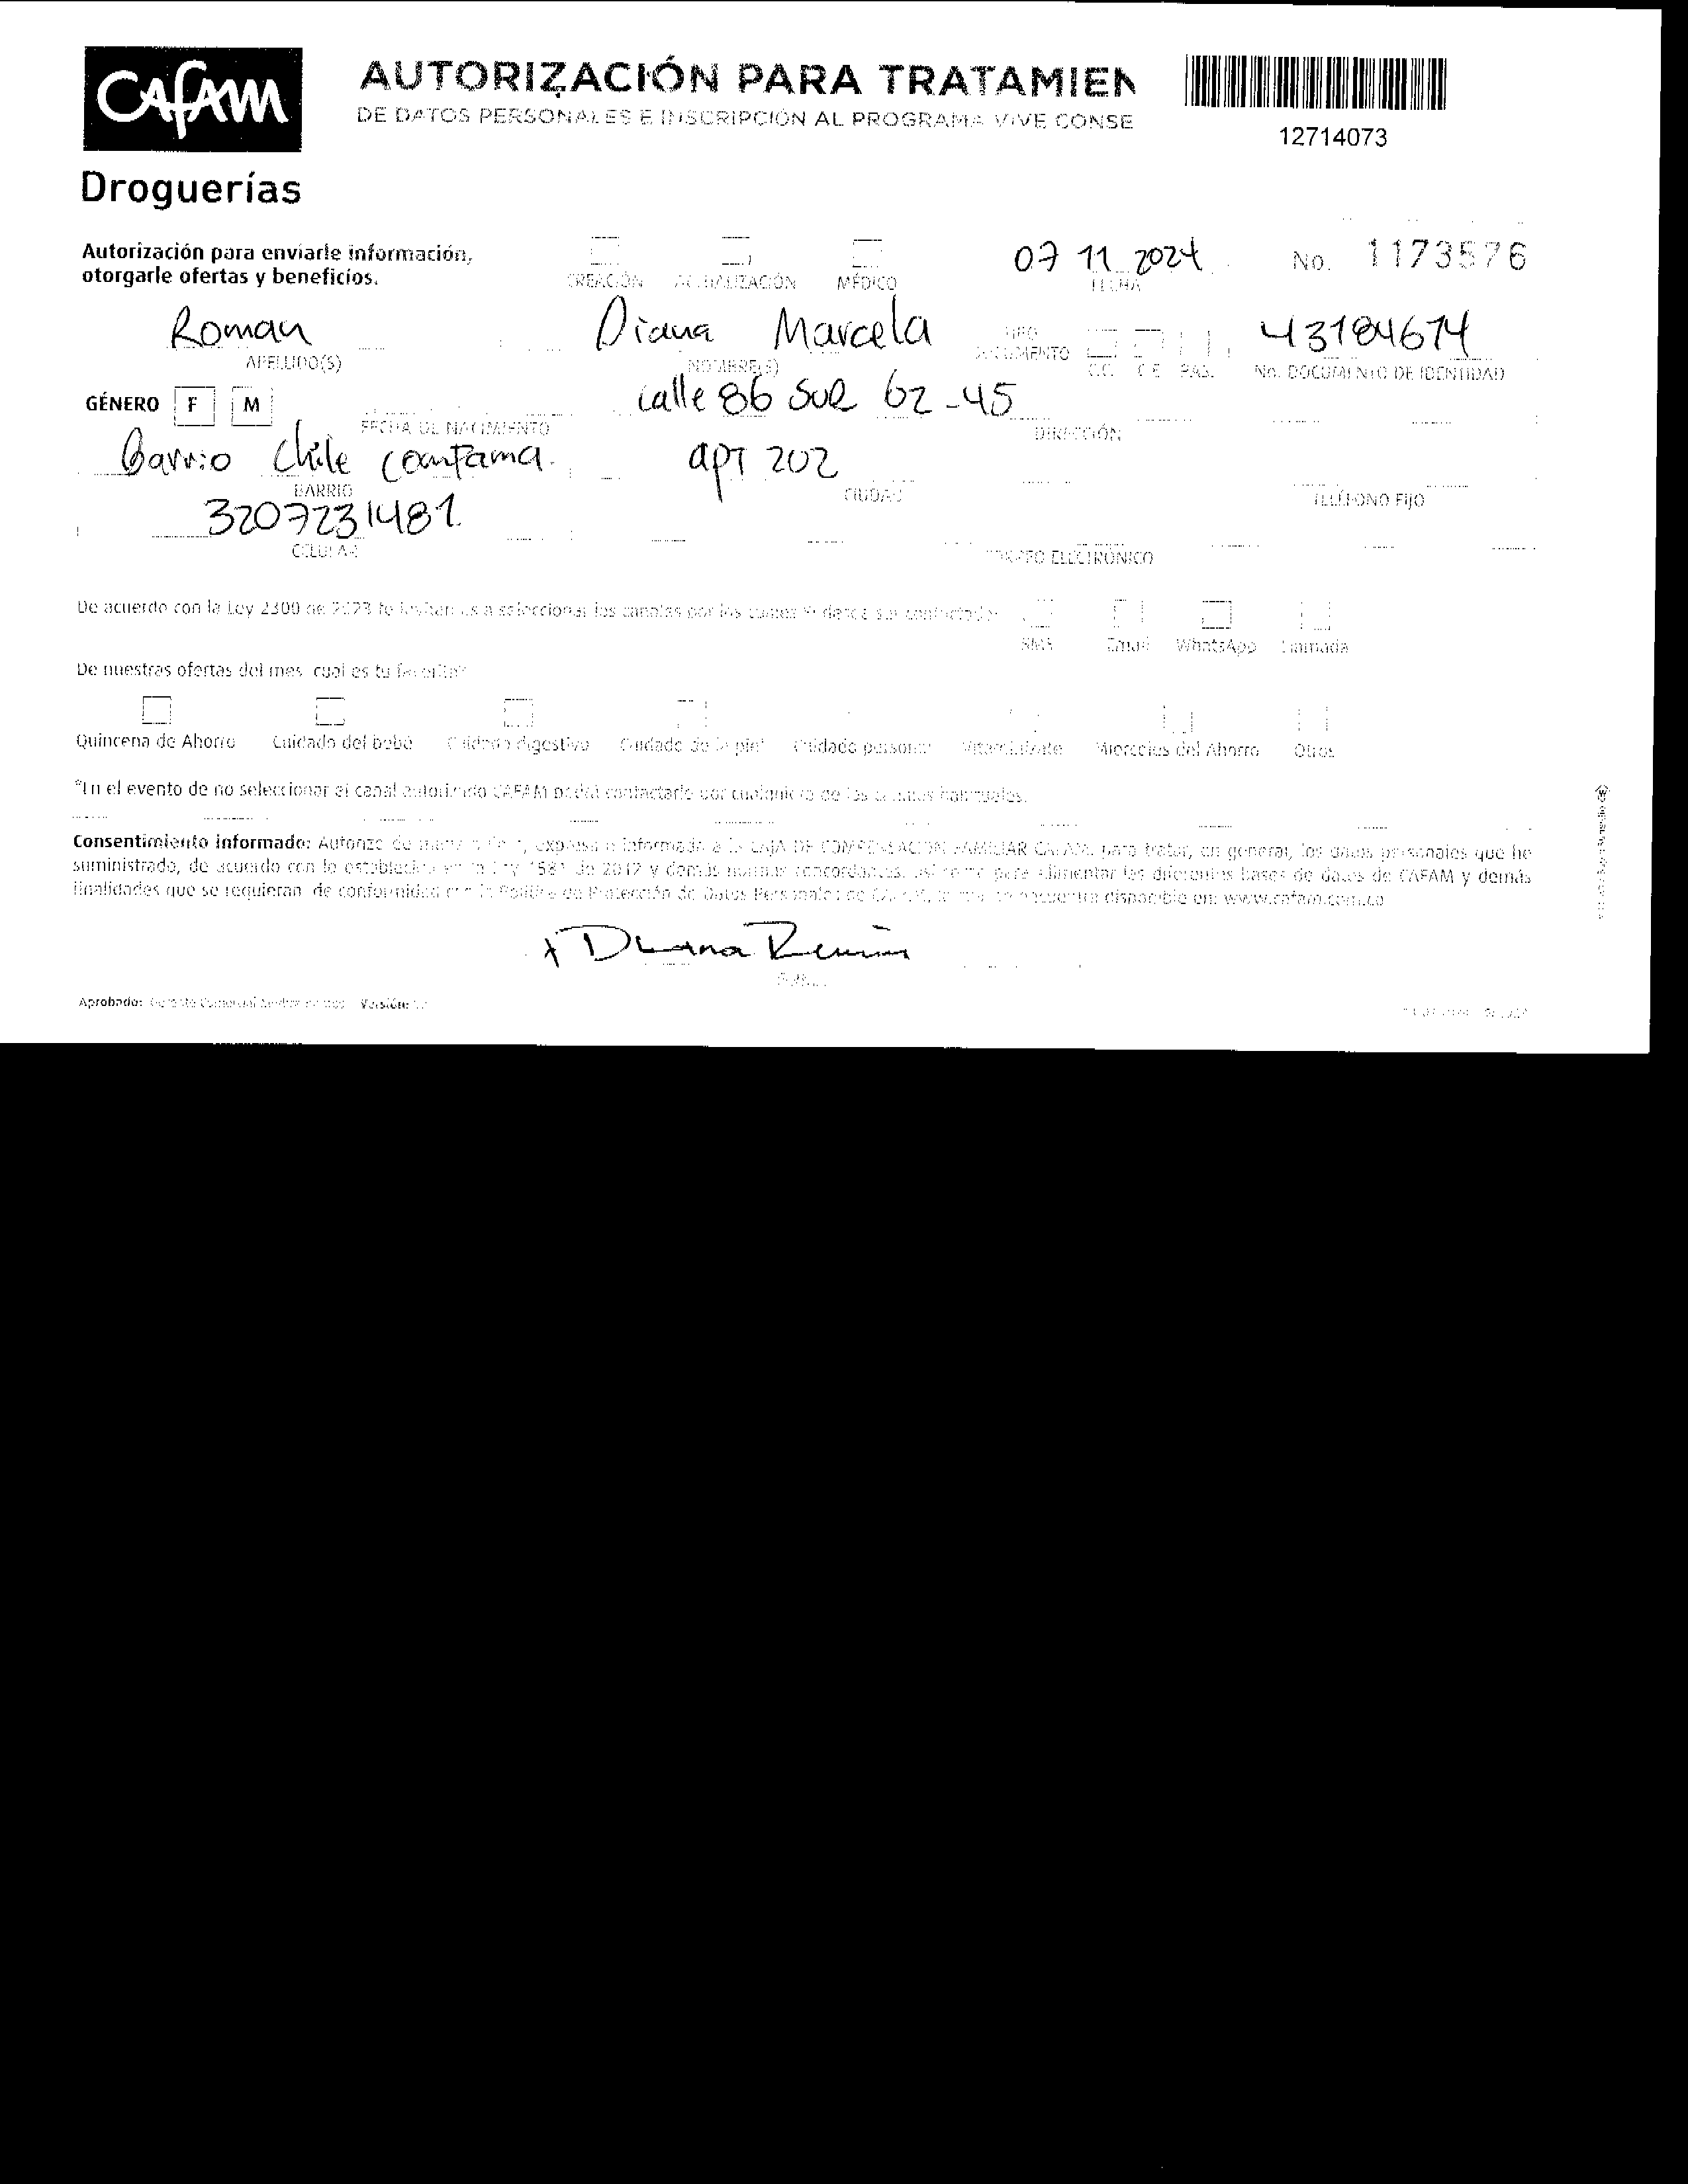 CAFAM
AUTORIZACIÓN PARA TRATAMIEN
DE DATOS PERSONALES E INSCRIPCIÓN AL PROGRAMA VIVE CONSE
12714073
Droguerías
Autorización para enviarle información,
otorgarle ofertas y beneficios.
CREACIÓN ACTUALIZACIÓN MÉDICO
07 11 2024
FECHA
No. 1173576
Roman
APELLIDO(S)
Diana Marcela
NOMBRE(S)
TIPO
DOCUMENTO
C.C. C.E. PAS.
43184674
No. DOCUMENTO DE IDENTIDAD
GÉNERO F M
FECHA DE NACIMIENTO
calle 86 SUR 62-45
DIRECCIÓN
Barrio Chile comfama.
BARRIO
apt 202
CIUDAD
TELÉFONO FIJO
3207231481
CELULAR
CORREO ELECTRÓNICO
De acuerdo con la Ley 2300 de 2023 te invitamos a seleccionar los canales por los cuales desea ser contactado:
SMS Email WhatsApp Llamada
De nuestras ofertas del mes cual es tu favorita?
Quincena de Ahorro Cuidado del bebé Cuidado digestivo Cuidado de la piel Cuidado personal Miercoles del Ahorro Otros
*En el evento de no seleccionar el canal autorizado CAFAM podrá contactarlo por cualquiera de los canales habituales.
Consentimiento informado: Autorizo de manera expresa e informada a la CAJA DE COMPENSACIÓN FAMILIAR CAFAM, para tratar, en general, los datos personales que he
suministrado, de acuerdo con lo establecido en la Ley 1581 de 2012 y demás normas concordantes, así como para alimentar las diferentes bases de datos de CAFAM y demás
finalidades que se requieran de conformidad con la Política de Protección de Datos Personales de CAFAM, la cual se encuentra disponible en: www.cafam.com.co
x Diana Roman
FIRMA
Aprobado: Versión: